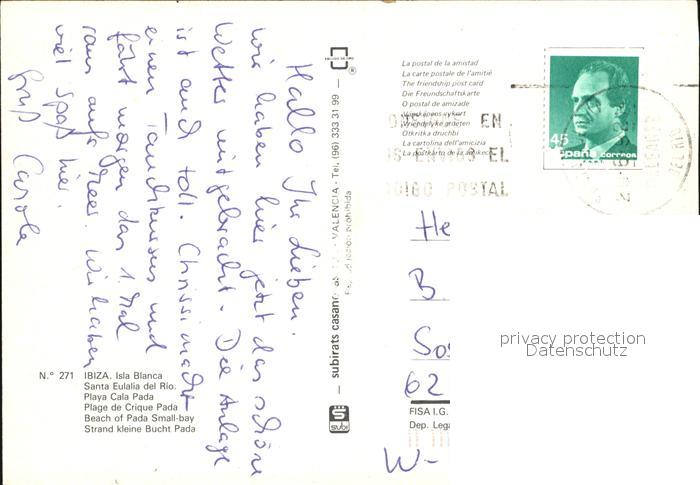 Hallo Ihr Lieben.
wir haben hier jetzt das schöne
Wetter mitgebracht. Die Anlage
ist auch toll. Chrissi macht
einen Tauchkursus und
fährt morgen das 1. Mal
raus aufs Meer. Wir haben
viel Spaß hier.
Gruß Carola
N.° 271 IBIZA. Isla Blanca
Santa Eulalia del Río.
Playa Cala Pada
Plage de Crique Pada
Beach of Pada Small-bay
Strand kleine Bucht Pada
subirats casano
VALENCIA - Tel. (96) 333 31 99
prohibida
subi
La postal de la amistad
La carte postale de l'amitié
The friendship post card
Die Freundschaftskarte
O postal de amizade
Vriendelyke groeten
Otkritka druchbi
La cartolina dell'amicizia
EN
EL
POSTAL
45
España correos
He
B
So
62
W-
FISA I.G.
Dep. Lega
privacy protection
Datenschutz